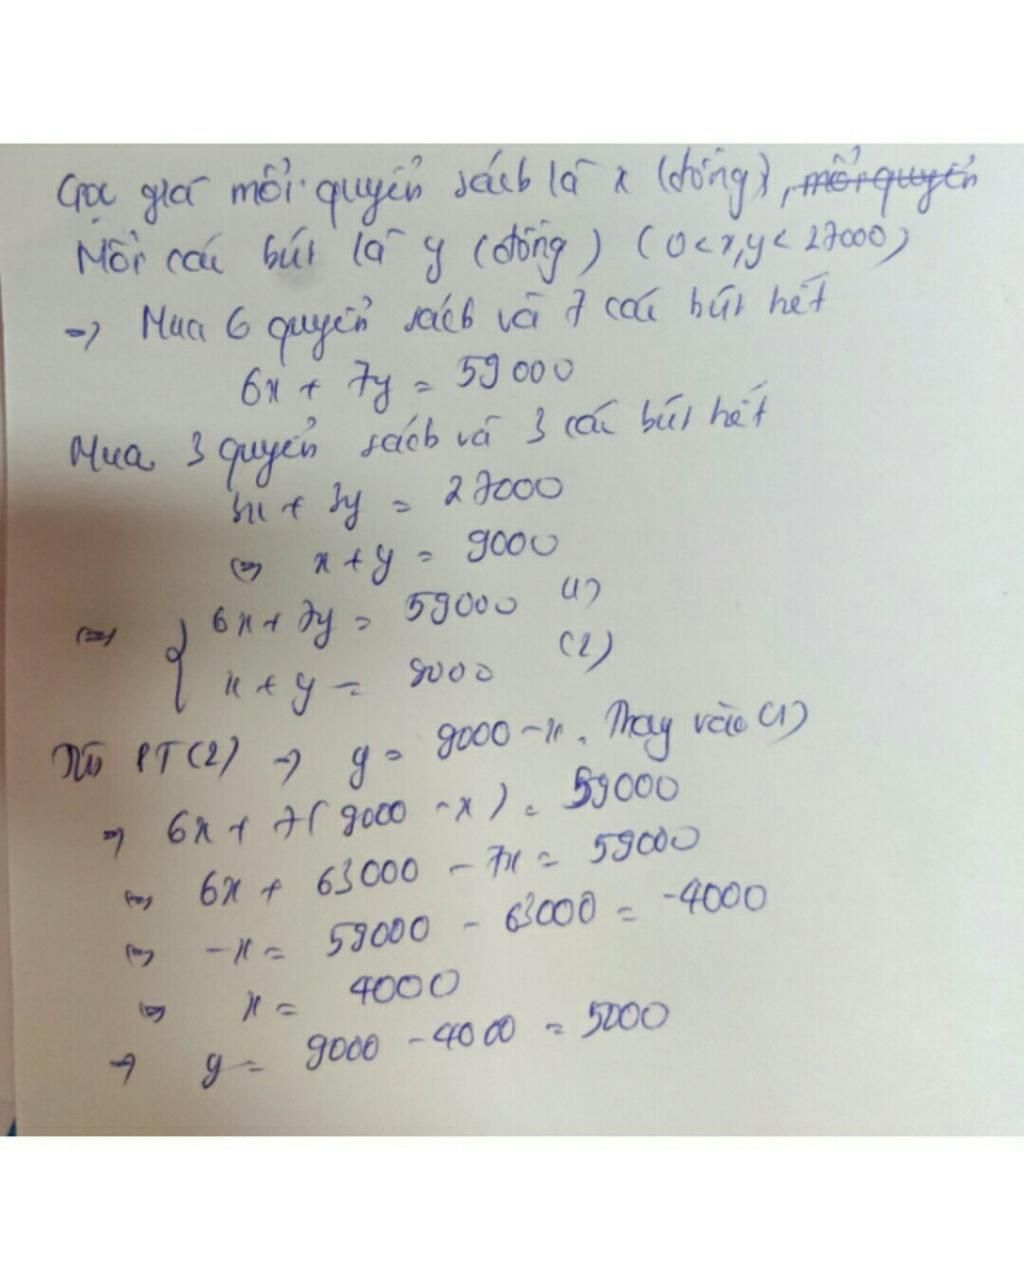 Gọi giá mỗi quyển sách là x (đồng), mỗi quyển
Mỗi cái bút là y (đồng) (0 < x, y < 27000)
=> Mua 6 quyển sách và 7 cái bút hết
6x + 7y = 59000
Mua 3 quyển sách và 3 cái bút hết
3x + 3y = 27000
<=> x + y = 9000
<=> { 6x + 7y = 59000 (1)
x + y = 9000 (2)
Từ PT(2) => y = 9000 - x. Thay vào (1)
=> 6x + 7(9000 - x) = 59000
<=> 6x + 63000 - 7x = 59000
<=> -x = 59000 - 63000 = -4000
<=> x = 4000
=> y = 9000 - 4000 = 5000